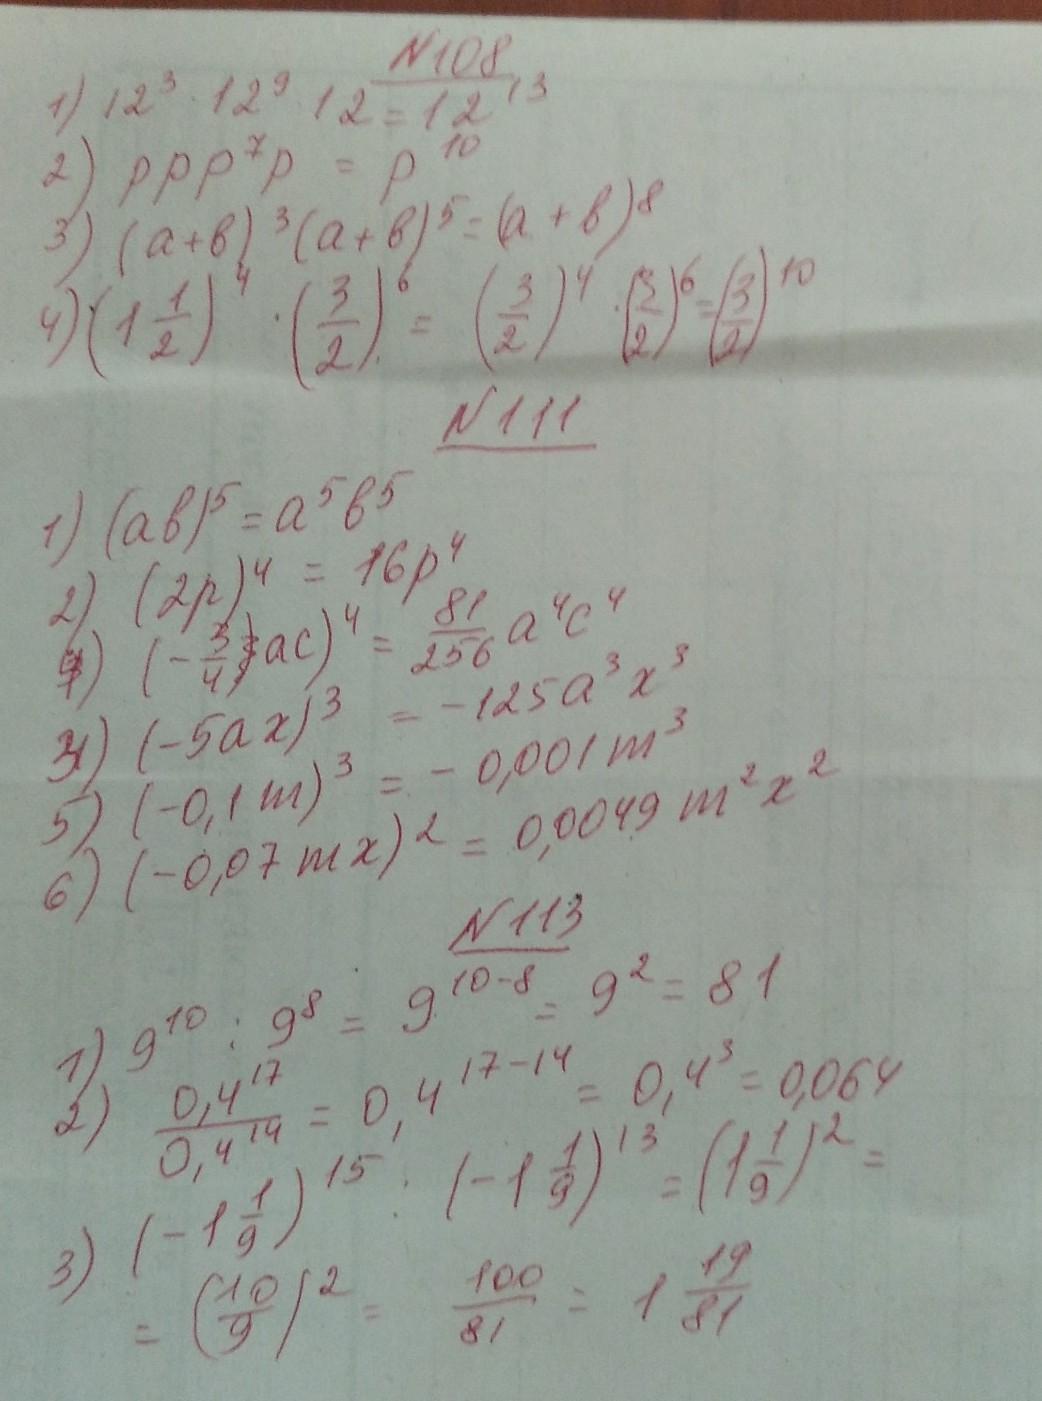 N108
1) 12³ · 12⁹ · 12 = 12¹³
2) p p p⁷ p = p¹⁰
3) (a+b)³ (a+b)⁵ = (a+b)⁸
4) (1 1/2)⁴ · (3/2)⁶ = (3/2)⁴ · (3/2)⁶ = (3/2)¹⁰
N111
1) (ab)⁵ = a⁵b⁵
2) (2p)⁴ = 16p⁴
4) (-3/4 ac)⁴ = 81/256 a⁴c⁴
3) (-5ax)³ = -125a³x³
5) (-0,1m)³ = -0,001m³
6) (-0,07mx)² = 0,0049m²x²
N113
1) 9¹⁰ : 9⁸ = 9¹⁰⁻⁸ = 9² = 81
2) 0,4¹⁷/0,4¹⁴ = 0,4¹⁷⁻¹⁴ = 0,4³ = 0,064
3) (-1 1/9)¹⁵ : (-1 1/9)¹³ = (1 1/9)² =
= (10/9)² = 100/81 = 1 19/81